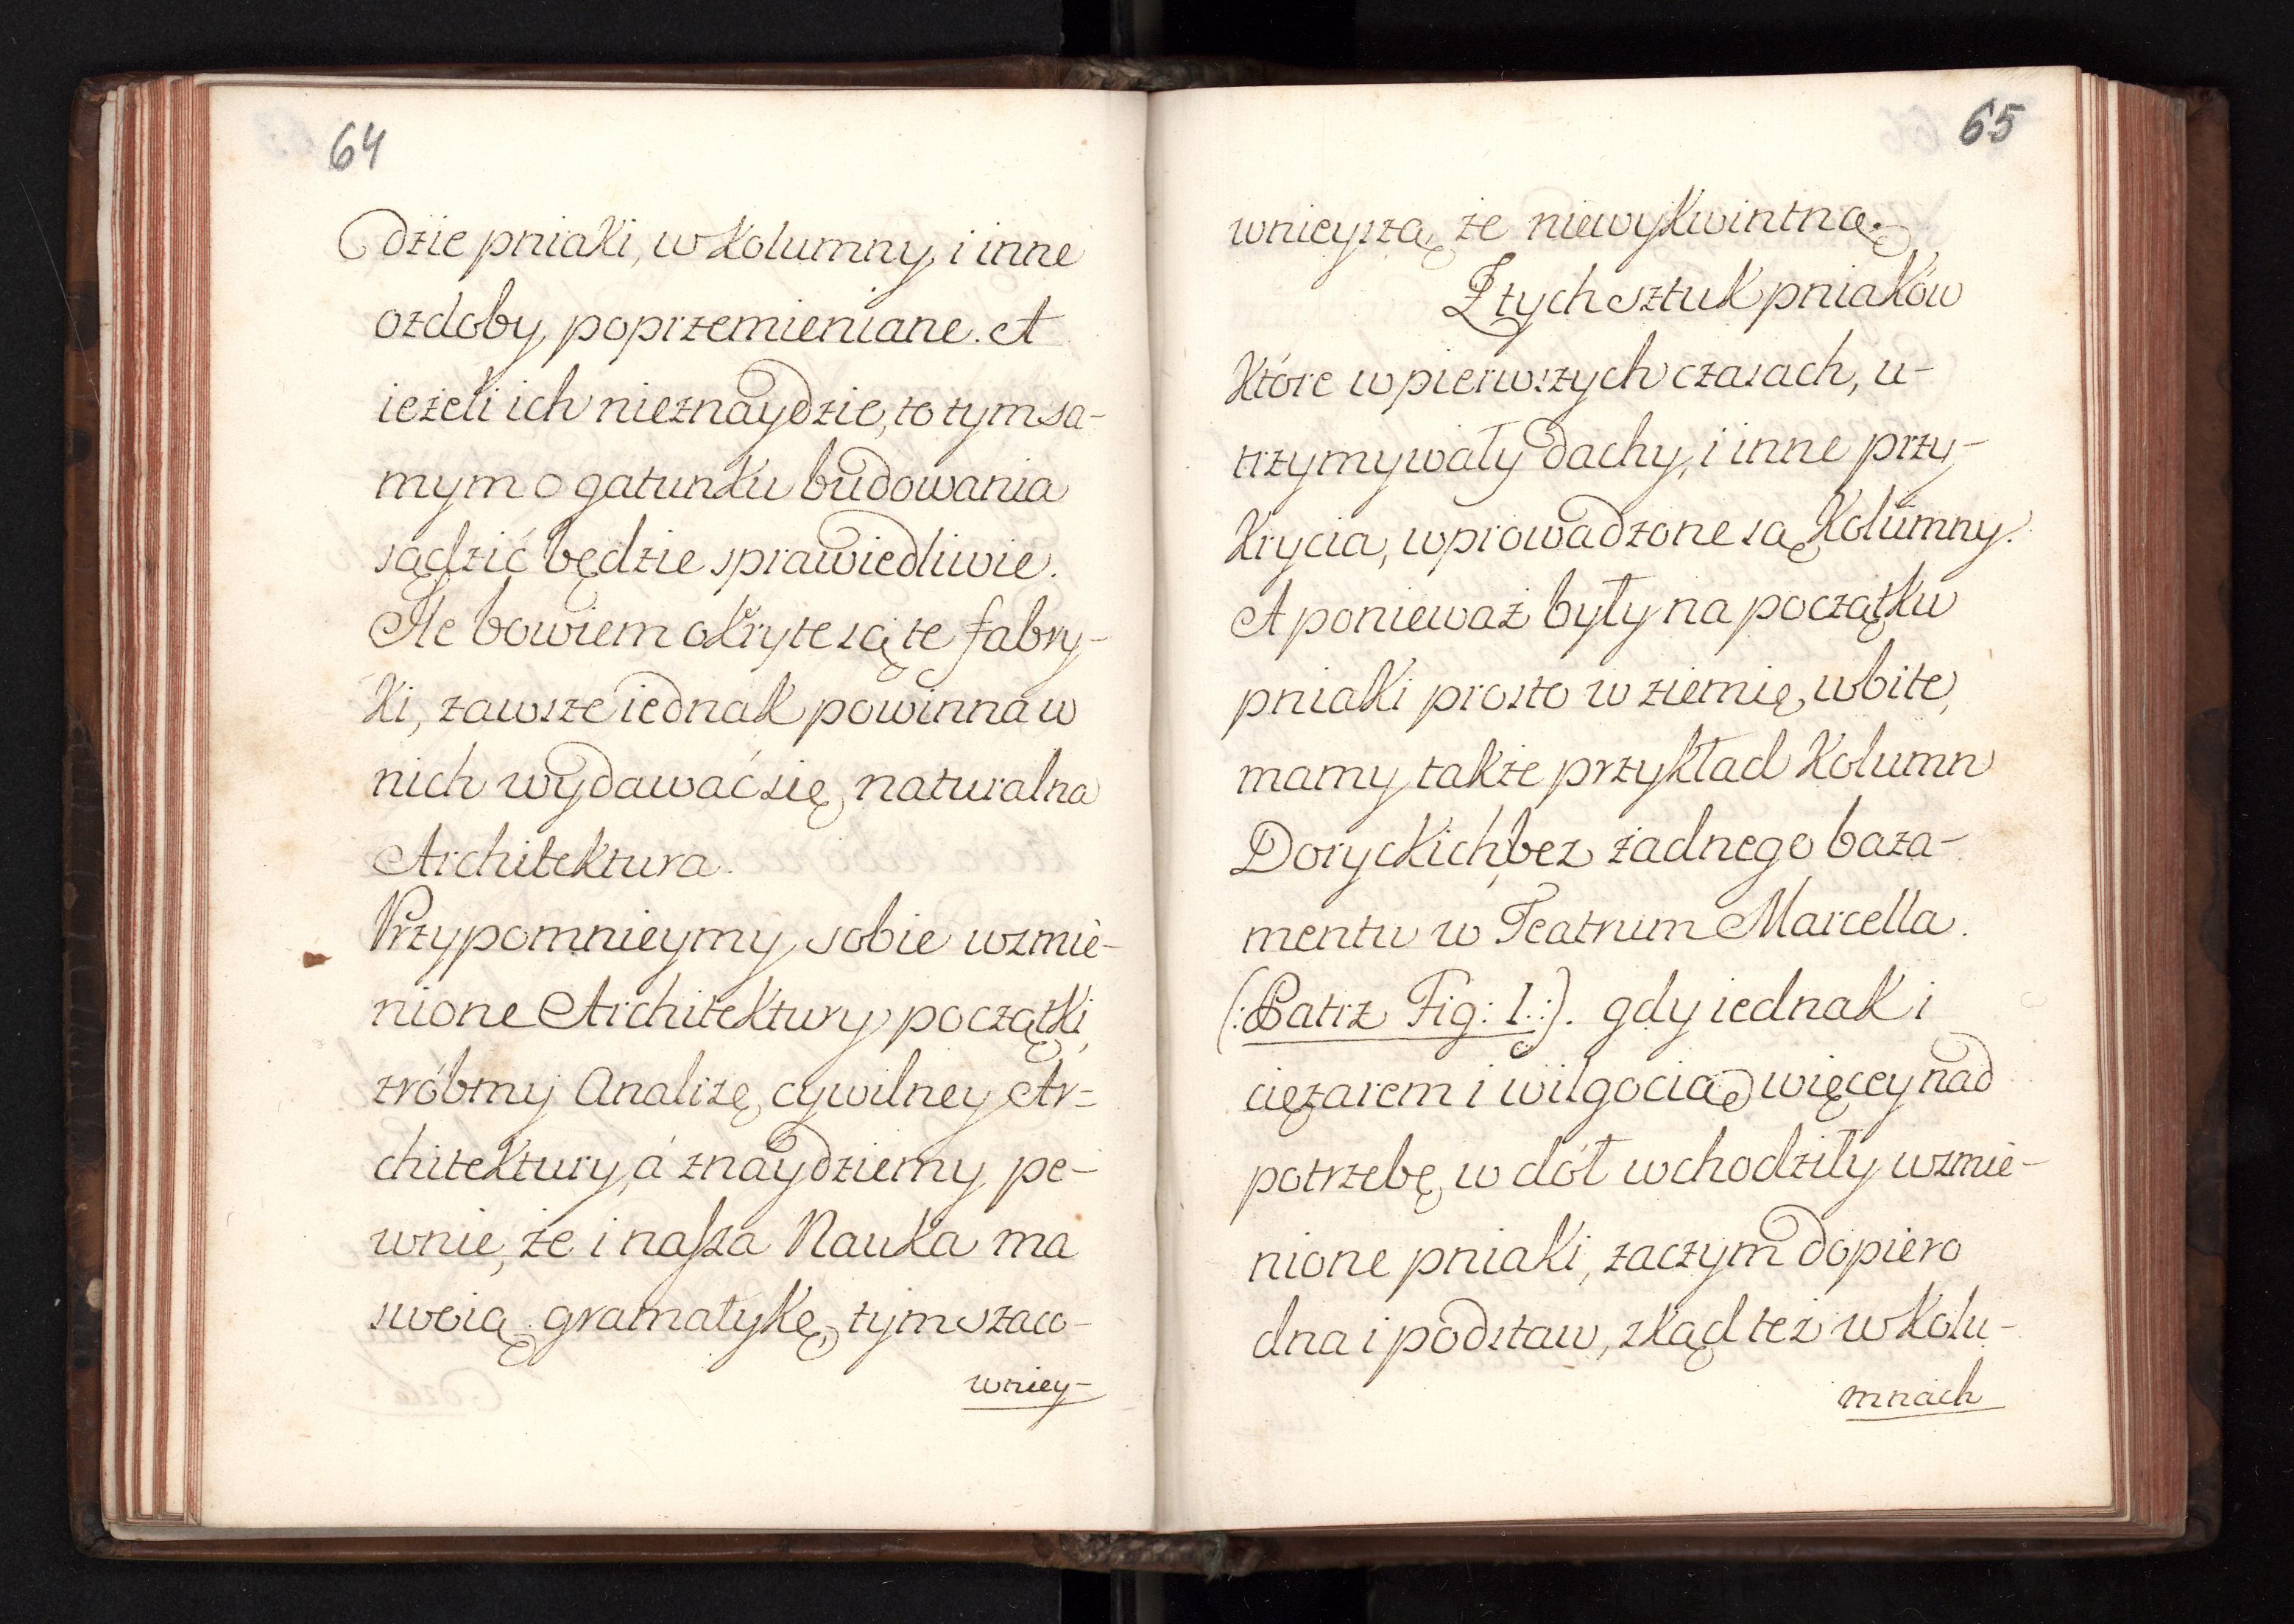 64
dzie pniaki, w kolumny, i inne
ozdoby poprzemieniane. A
ieżeli ich nieznaydzie, to tym sa-
mym o gatunku budowania
sądzić będzie sprawiedliwie.
Ile bowiem okryte są te fabry-
ki, zawsze iednak powinna w
nich wydawać się naturalna
Architektura.
Przypomnieymy sobie wzmie-
nione Architektury początki,
zróbmy Analizę cywilney Ar-
chitektury, á znaydziemy pe-
wnie, że i nasza Nauka ma
swoią gramatykę, tym szaco-
wniey-
65
wnieyszą że niewykwintną.
Z tych sztuk pniaków
które w pierwszych czasach, u-
trzymywały dachy, i inne przy-
krycia, wprowadzone są kolumny.
A ponieważ były na początku
pniaki prosto w ziemię wbite,
mamy także przykład kolumn
Doryckich, bez żadnego baza-
mentu w Teatrum Marcella.
(: Patrz Fig: 1. :). gdy iednak i
ciężarem i wilgocią więcey nad
potrzebę w dół wchodziły wzmie-
nione pniaki, zaczym dopiero
dna i podstaw, zkąd też w kolu-
mnach